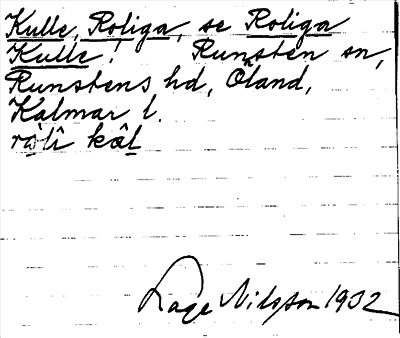 Kulle, Roliga, se Roliga
Kulle! Runsten sn,
Runstens hd, Öland,
Kalmar l.
Nilsson 1932